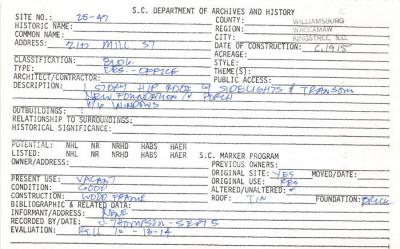 S.C. DEPARTMENT OF ARCHIVES AND HISTORY
SITE NO.: 25-47 COUNTY: WILLIAMSBURG
HISTORIC NAME: REGION: WACCAMAW
COMMON NAME: CITY: KINGSTREE, S.C.
ADDRESS: MILL ST DATE OF CONSTRUCTION: C.1915
ACREAGE:
CLASSIFICATION: BLDG. STYLE:
TYPE: RES.-OFFICE THEME(S):
ARCHITECT/CONTRACTOR: PUBLIC ACCESS:
DESCRIPTION: 1 STORY HIP ROOF W/ SIDELIGHTS & TRANSOM
NEW FOUNDATION PORCH
6/6 WINDOWS
OUTBUILDINGS:
RELATIONSHIP TO SURROUNDINGS:
HISTORICAL SIGNIFICANCE:
POTENTIAL: NHL NR NRHD HABS HAER
LISTED: NHL NR NRHD HABS HAER S.C. MARKER PROGRAM
OWNER/ADDRESS: PREVIOUS OWNERS:
ORIGINAL SITE: YES MOVED/DATE:
PRESENT USE: VACANT ORIGINAL USE: RES
CONDITION: GOOD ALTERED/UNALTERED:
CONSTRUCTION: WOOD FRAME ROOF: TIN FOUNDATION: BRICK
BIBLIOGRAPHIC & RELATED DATA:
INFORMANT/ADDRESS: NONE
RECORDED BY/DATE: J. THOMPSON-
EVALUATION: 10-13-14